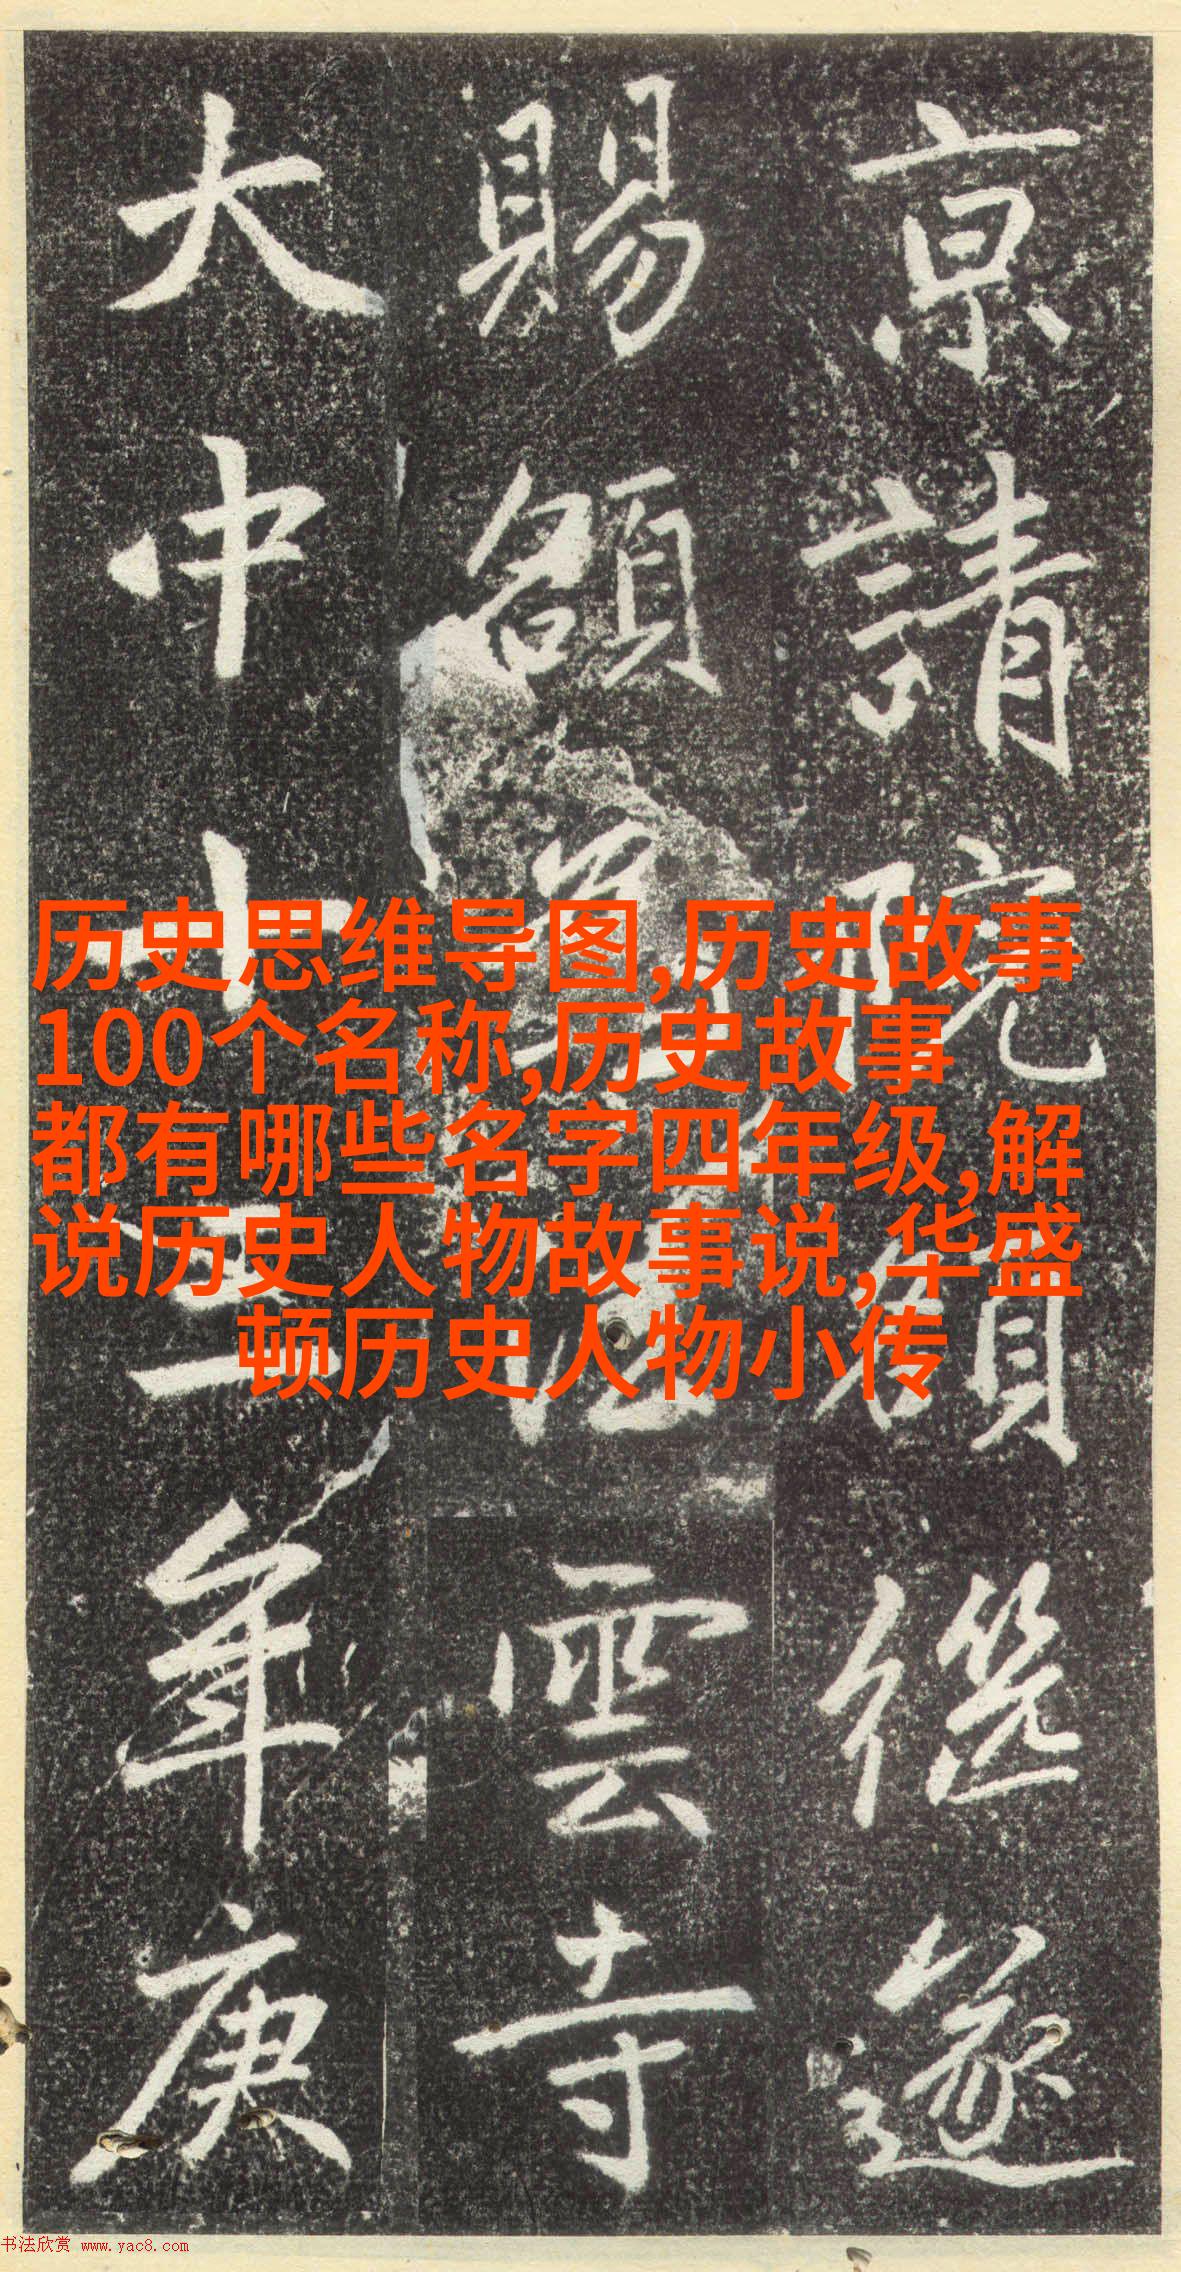 京請院額遂
賜額雲寺
大中十三年庚
历史思维导图,历史故事
100个名称,历史故事
都有哪些名字四年级,解
说历史人物故事说,华盛
顿历史人物小传
书法欣赏 www.yac8.com